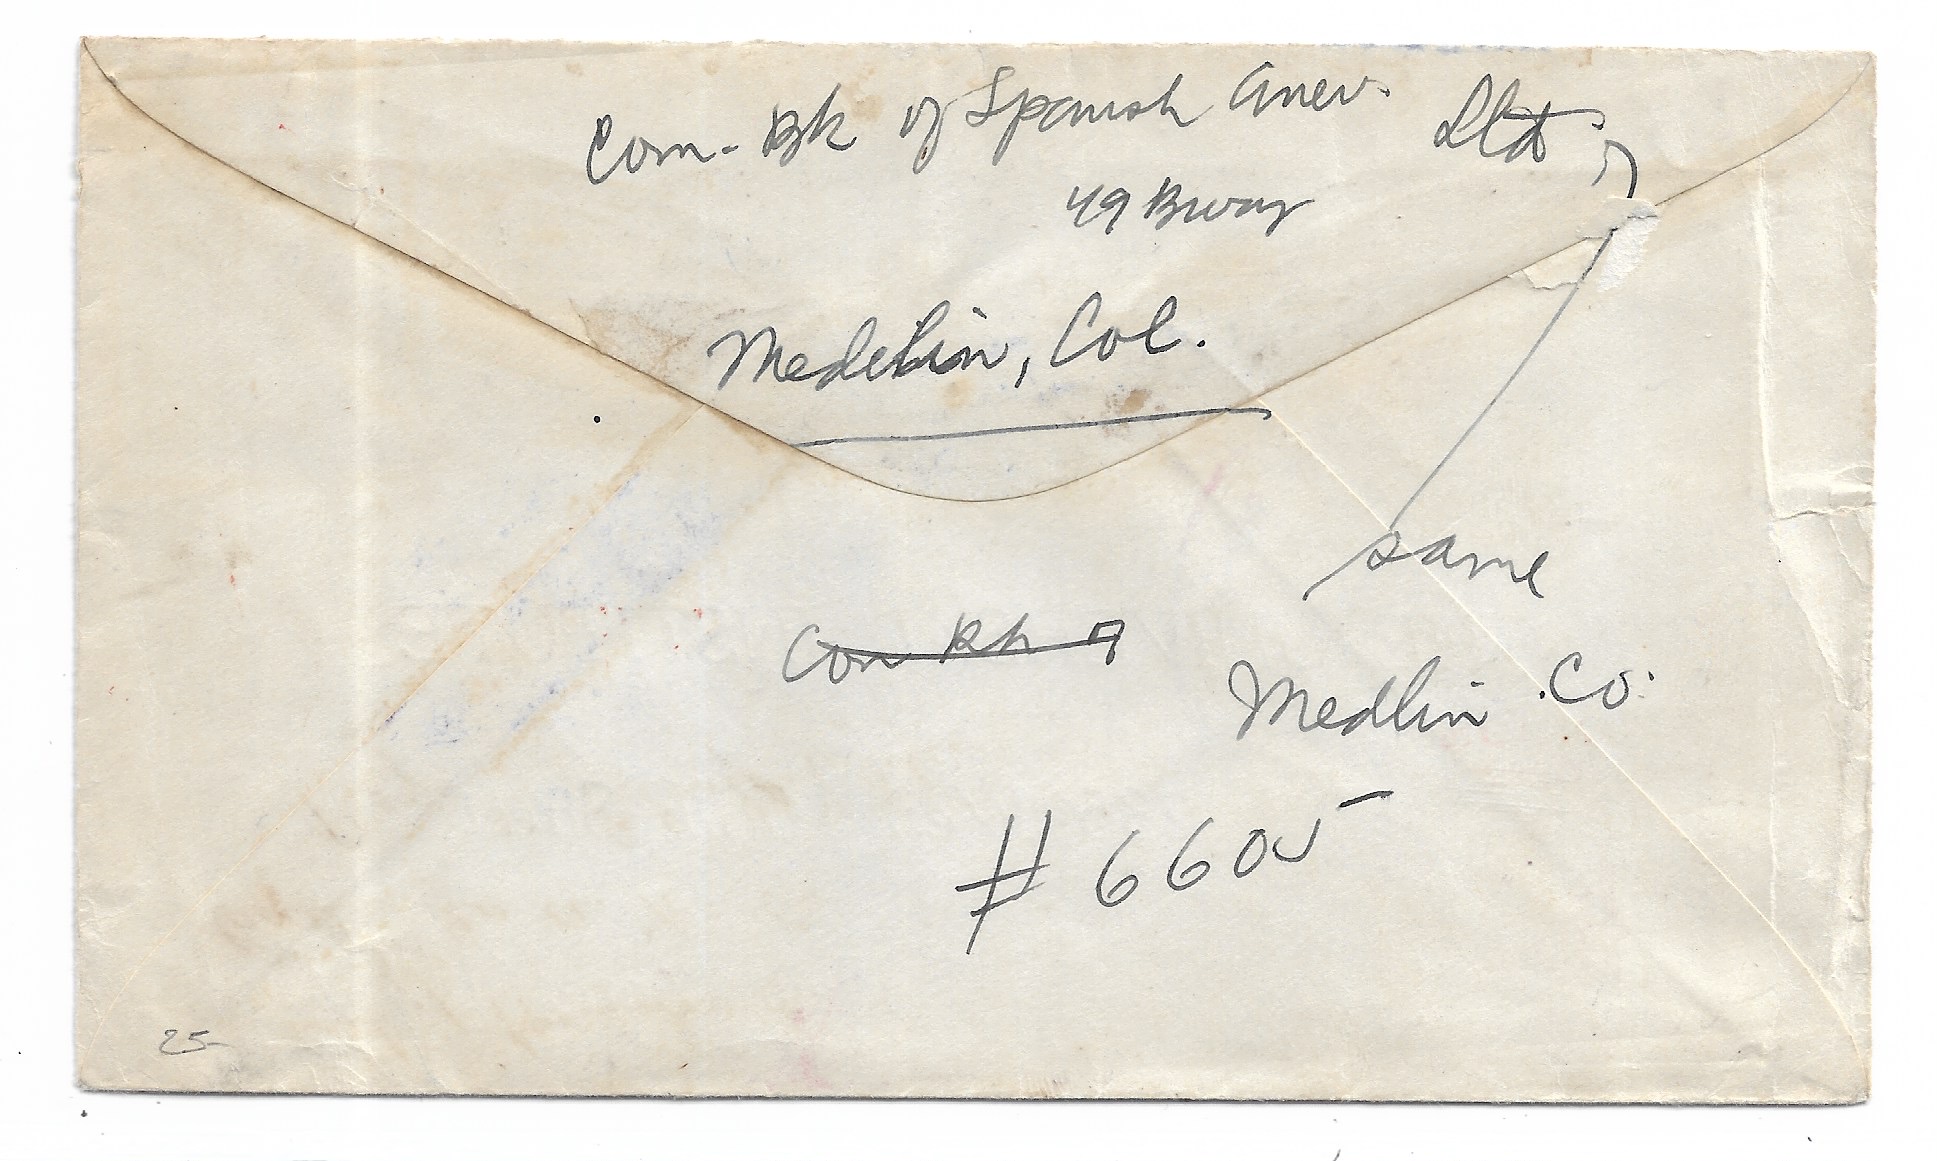 Com. Bk of Spanish Amer. Ltd
49 Bway
Medellin, Col.
same
Com Bk of
Medlin .Co.
# 6605
25-